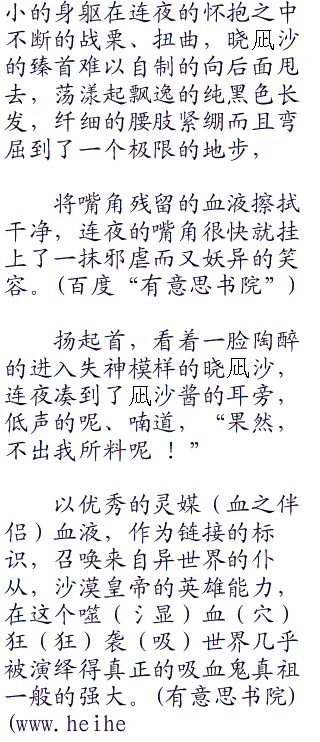 小的身躯在连夜的怀抱之中
不断的战栗、扭曲，晓凪沙
的臻首难以自制的向后面甩
去，荡漾起飘逸的纯黑色长
发，纤细的腰肢紧绷而且弯
屈到了一个极限的地步，
将嘴角残留的血液擦拭
干净，连夜的嘴角很快就挂
上了一抹邪虐而又妖异的笑
容。(百度“有意思书院”)
扬起首，看着一脸陶醉
的进入失神模样的晓凪沙，
连夜凑到了凪沙酱的耳旁，
低声的呢、喃道，“果然，
不出我所料呢 ！”
以优秀的灵媒（血之伴
侣）血液，作为链接的标
识，召唤来自异世界的仆
从，沙漠皇帝的英雄能力，
在这个噬（氵显）血（穴）
狂（狂）袭（吸）世界几乎
被演绎得真正的吸血鬼真祖
一般的强大。(有意思书院)
(www.heihe